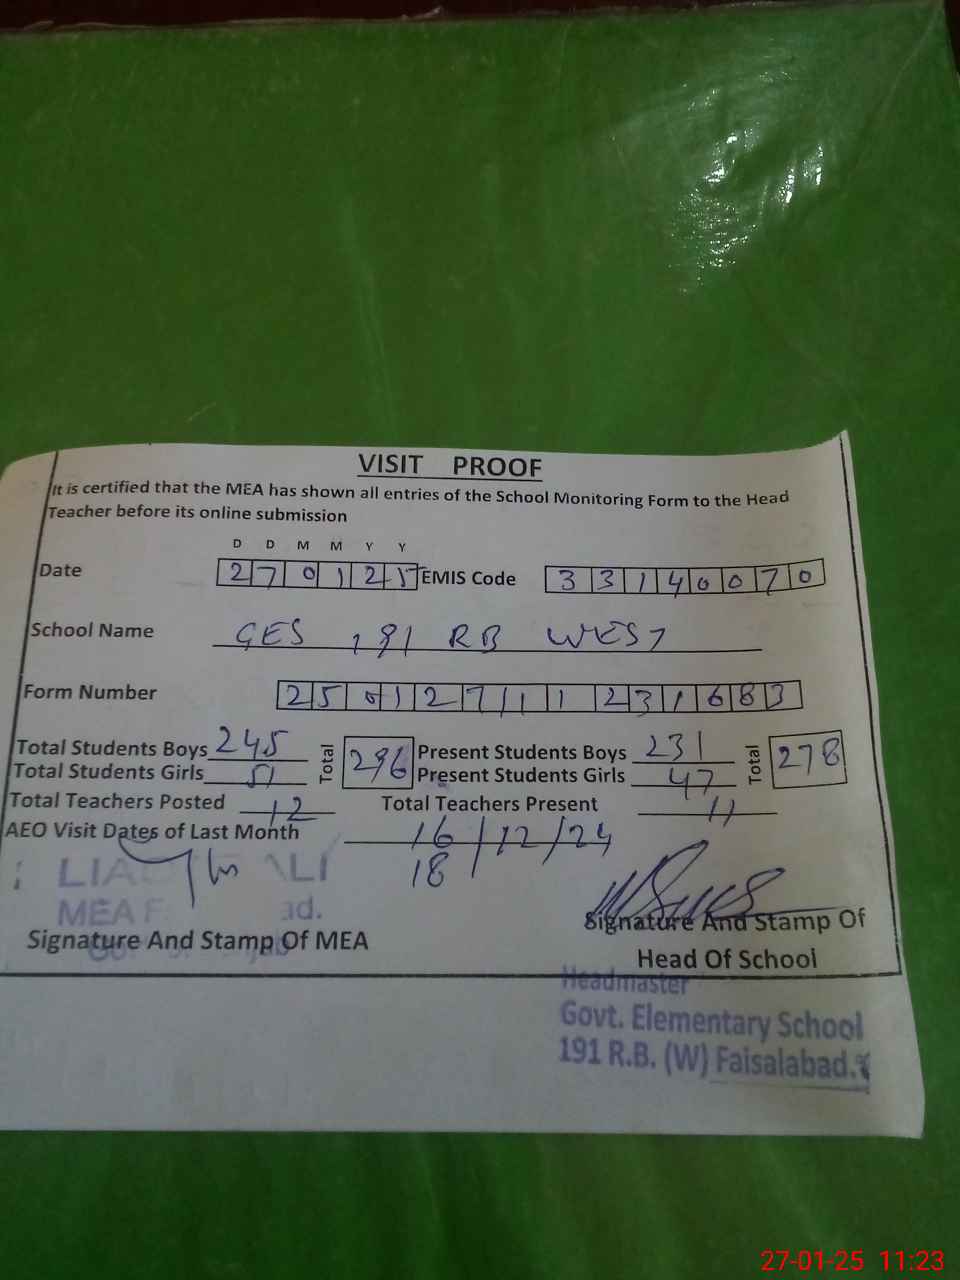 VISIT PROOF
It is certified that the MEA has shown all entries of the School Monitoring Form to the Head
Teacher before its online submission
D D M M Y Y
Date 270125 EMIS Code 33140070
School Name GES 191 RB WEST
Form Number 250127111231683
Total Students Boys 245 Total 296 Present Students Boys 231 Total 278
Total Students Girls 51 Present Students Girls 47
Total Teachers Posted 12 Total Teachers Present 11
AEO Visit Dates of Last Month 16/12/24
18
MEA
Signature And Stamp Of MEA
Signature And Stamp Of
Head Of School
Headmaster
Govt. Elementary School
191 R.B. (W) Faisalabad.
27-01-25 11:23